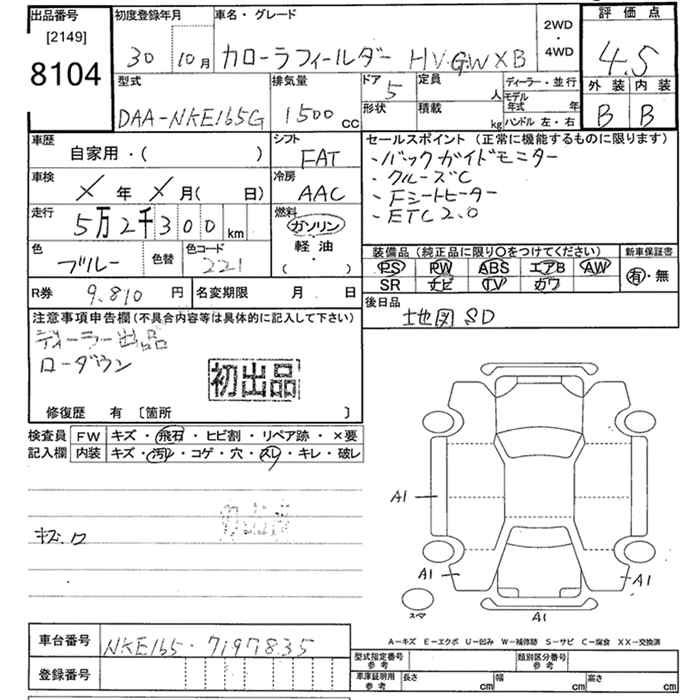 出品番号
[2149]
8104
初度登録年月
30 10月
車名・グレード
カローラフィールダー HV.G.WXB
2WD
・
4WD
評価点
4.5
外装 内装
B B
型式
DAA-NKE165G
排気量
1500 cc
ドア
5
定員
人
形状
積載
kg
ディーラー・並行
モデル年式 年
ハンドル 左・右
車歴
自家用・( )
シフト
FAT
車検
X年 X月( 日)
冷房
AAC
走行
5万2千300 km
燃料
ガソリン
軽油・
( ・ )
色
ブルー
色替
色コード
221
セールスポイント(正常に機能するものに限ります)
・バックガイドモニター
・クルーズC
・Fシートヒーター
・ETC2.0
装備品(純正品に限り○をつけてください)
PS PW ABS エアB AW
SR ナビ TV カワ
新車保証書
有・無
R券 9,810 円
名変期限 月 日
後日品
地図SD
注意事項申告欄(不具合内容等は具体的に記入して下さい)
ディーラー出品
ローダウン
初出品
修復歴 有 [箇所 ]
検査員
記入欄
FW キズ・飛石・ヒビ割・リペア跡・×要
内装 キズ・汚レ・コゲ・穴・スレ・キレ・破レ
A1
A1
A1
A1
スマ
A-キズ E-エクボ U-凹み W-補修跡 S-サビ C-腐食 XX-交換済
車台番号 NKE165-7197835
登録番号
型式指定番号
参考
類別区分番号
参考
車庫証明用
参考
長さ cm
幅 cm
高さ cm